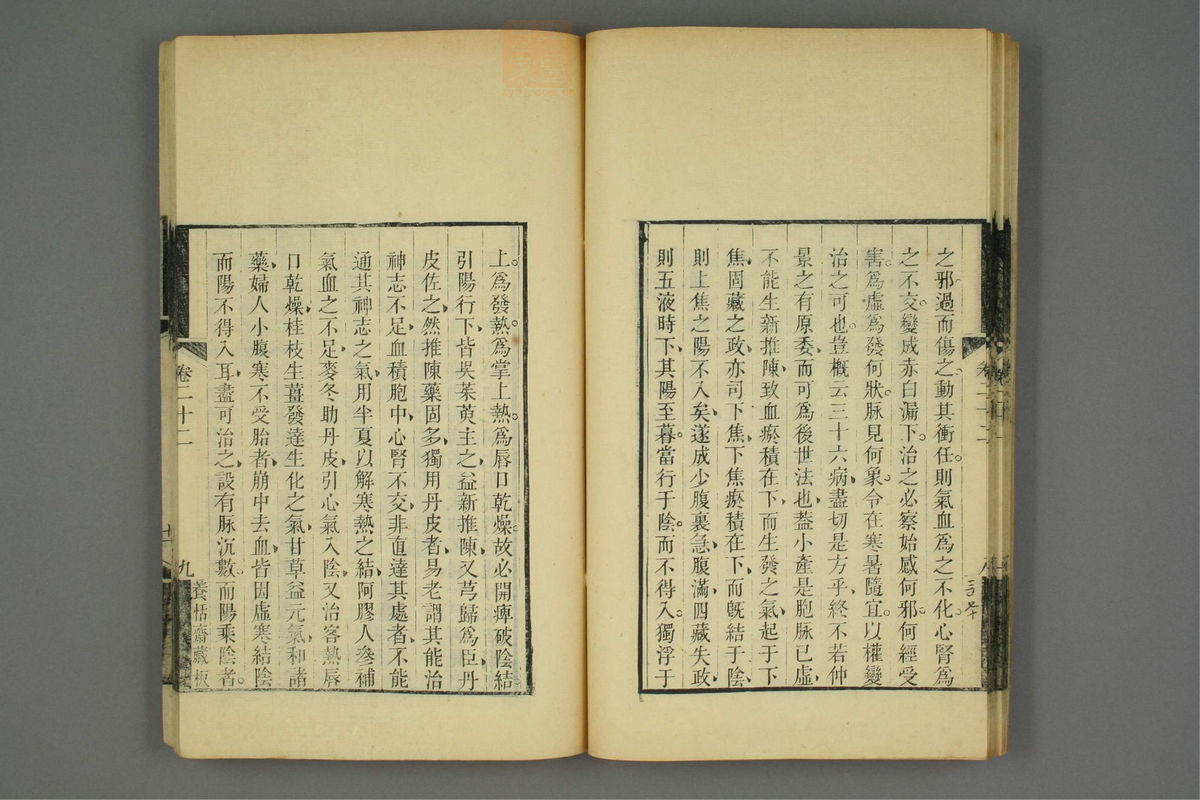 之邪過而傷之動其衝任則氣血爲之不化心腎爲
之不交變成赤白漏下治之必察始感何邪何經受
害爲虛爲發何狀脉見何象令在寒暑隨宜以權變
治之可也豈概云三十六病盡切是方乎終不若仲
景之有原委而可爲後世法也蓋小產是胞脉已虛
不能生新推陳致血瘀積在下而生發之氣起于下
焦固藏之政亦司下焦下焦瘀積在下而既結于陰
則上焦之陽不入矣遂成少腹裏急腹滿四藏失政
則五液時下其陽至暮當行于陰而不得入獨浮于
上爲發熱爲掌上熱爲唇口乾燥故必開痺破陰結
引陽行下皆吳茱萸主之益新推陳又芎歸爲臣丹
皮佐之然推陳藥固多獨用丹皮者易老謂其能治
神志不足血積胞中心腎不交非直達其處者不能
通其神志之氣用半夏以解寒熱之結阿膠人參補
氣血之不足麥冬助丹皮引心氣入陰又治客熱唇
口乾燥桂枝生薑發達生化之氣甘草益元氣和諸
藥婦人小腹寒不受胎者崩中去血皆因虛寒結陰
而陽不得入耳盡可治之設有脉沉數而陽乘陰者
卷二十二
九
養恬齋藏板